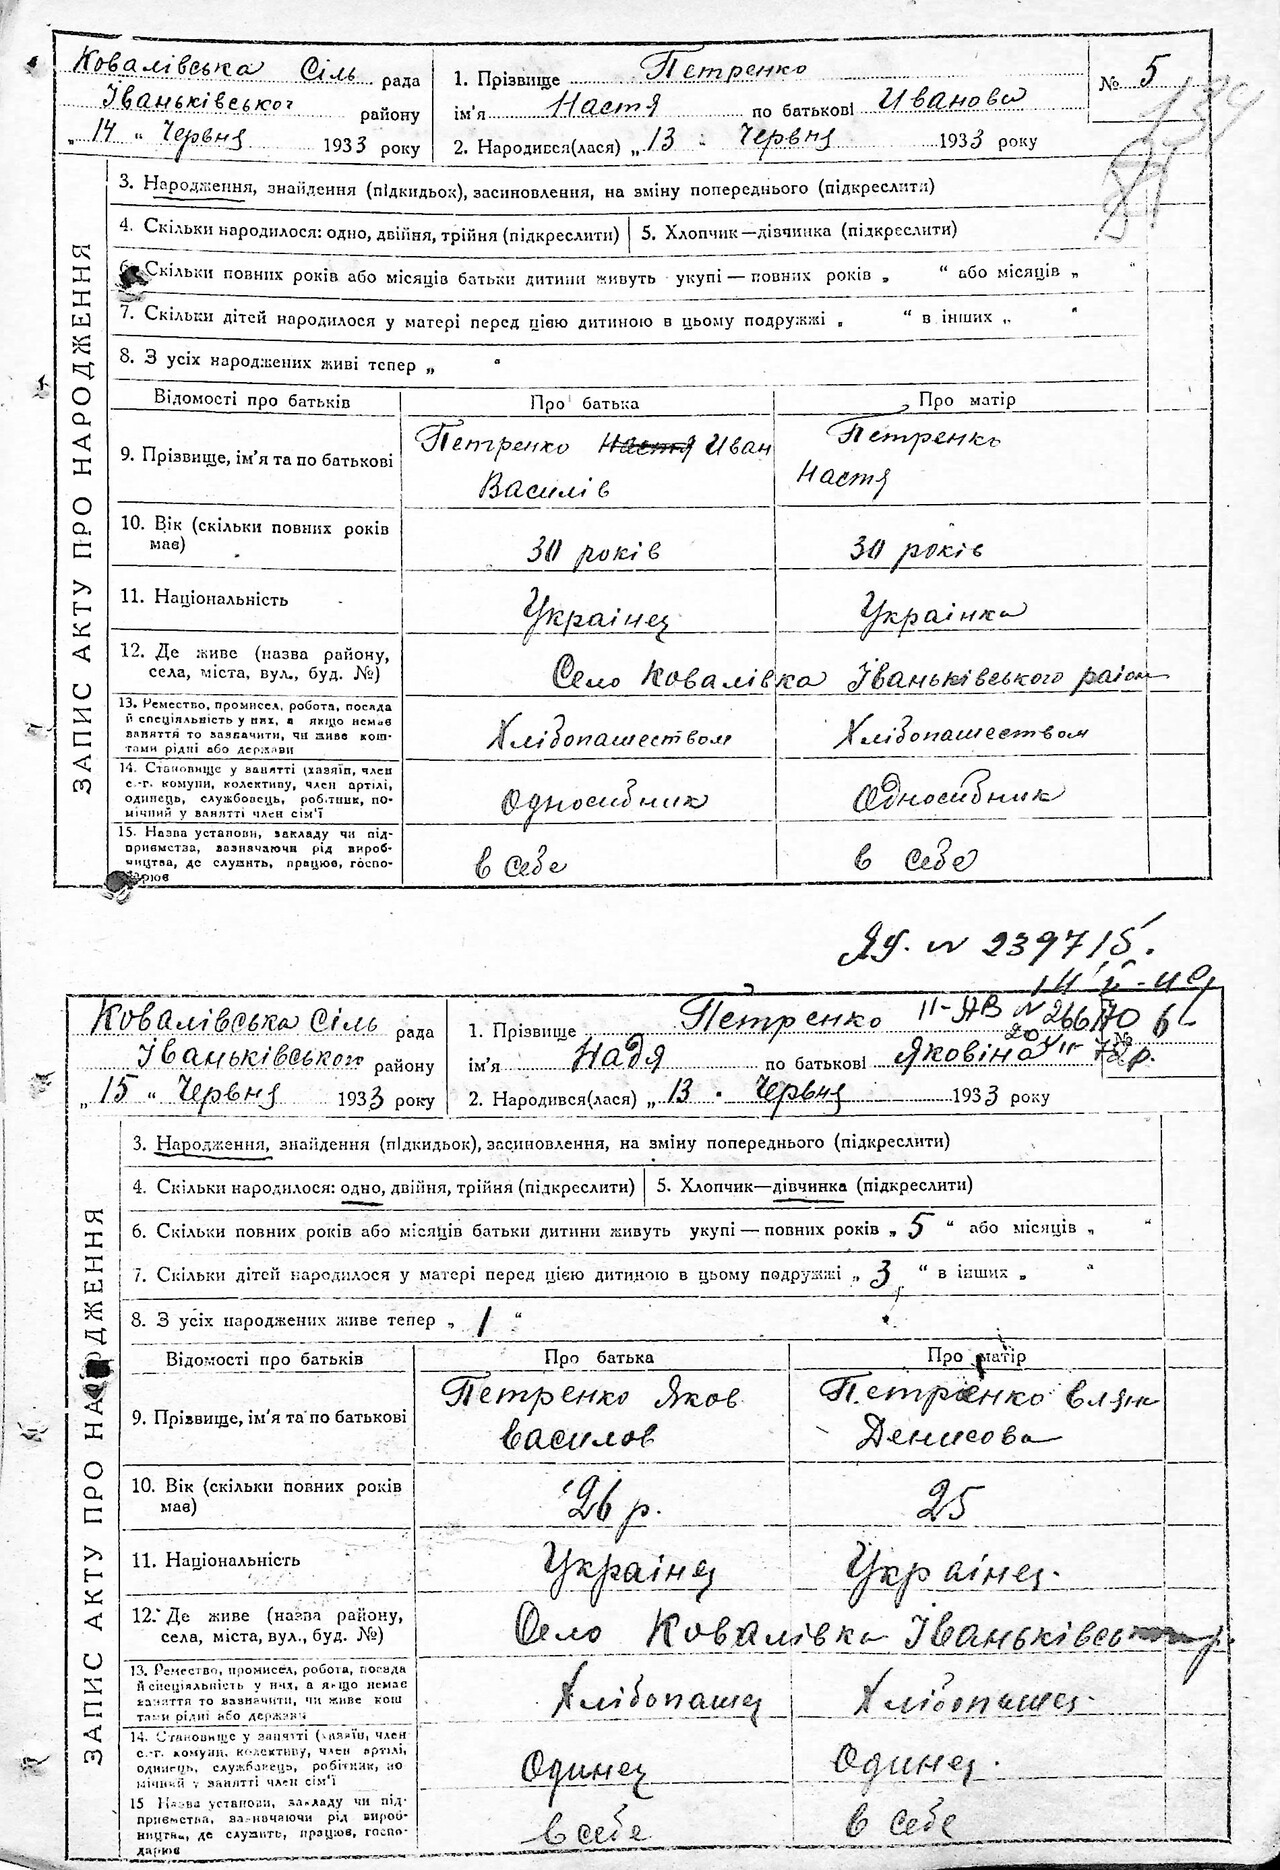 Ковалівська Сіль рада
Іваньківського району
„14“ Червня 1933 року
1. Прізвище Петренко
ім'я Настя по батькові Иванова
2. Народився(лася) „13 Червня 1933 року
№ 5
134
ЗАПИС АКТУ ПРО НАРОДЖЕННЯ
3. Народження, знайдення (підкидьок), засиновлення, на зміну попереднього (підкреслити)
4. Скільки народилося: одно, двійня, трійня (підкреслити) 5. Хлопчик—дівчинка (підкреслити)
6. Скільки повних років або місяців батьки дитини живуть укупі — повних років „ “ або місяців „ “
7. Скільки дітей народилося у матері перед цією дитиною в цьому подружжі „ “ в інших „ “
8. З усіх народжених живі тепер „ “
Відомості про батьків Про батька Про матір
9. Прізвище, ім'я та по батькові
Петренко Настя Иван
Василів
Петренко
Настя
10. Вік (скільки повних років
має)
30 років 30 років
11. Національність Украінец Украінка
12. Де живе (назва району,
села, міста, вул., буд. №)
Село Ковалівка Іваньківського район
13. Ремество, промисел, робота, посада
й спеціяльність у них, а якщо немає
заняття то зазначити, чи живе кош-
тами рідні або держави
Хлібопашеством Хлібопашеством
14. Становище у занятті (хазяїн, член
с.-г. комуни, колективу, член артілі,
одинець, службовець, робітник, по-
мічний у занятті член сім'ї
Односибник Односибник
15. Назва установи, закладу чи під-
приємства, зазначаючи рід вироб-
ництва, де служить, працює, госпо-
дарює
в себе в себе
ЯУ. № 239715.
Ковалівська Сіль рада
Іваньківського району
„15“ Червня 1933 року
1. Прізвище Петренко
II-ЯВ № 266470
№ 6
ім'я Надя по батькові Яковіна
2. Народився(лася) „13 Червня 1933 року
ЗАПИС АКТУ ПРО НАРОДЖЕННЯ
3. Народження, знайдення (підкидьок), засиновлення, на зміну попереднього (підкреслити)
4. Скільки народилося: одно, двійня, трійня (підкреслити) 5. Хлопчик—дівчинка (підкреслити)
6. Скільки повних років або місяців батьки дитини живуть укупі — повних років „5“ або місяців „ “
7. Скільки дітей народилося у матері перед цією дитиною в цьому подружжі „3“ в інших „ “
8. З усіх народжених живе тепер „1“
Відомості про батьків Про батька Про матір
9. Прізвище, ім'я та по батькові
Петренко Яков
Василов
Петренко
Денисова
10. Вік (скільки повних років
має)
26 р. 25
11. Національність Украінец Украінец.
12. Де живе (назва району,
села, міста, вул., буд. №)
Село Ковалівка
13. Ремество, промисел, робота, посада
й спеціяльність у них, а якщо немає
заняття то зазначити, чи живе кош
тами рідні або держави
Хлібопашец Хлібопашец.
14. Становище у занятті (хазяїн, член
с.-г. комуни, колективу, член артілі,
одинець, службовець, робітник, по
мічний у занятті член сім'ї
Одинец Одинец.
15 Назва установи, закладу чи під-
приємства, зазначаючи рід вироб-
ництва, де служить, працює, госпо-
дарює
в себе в себе